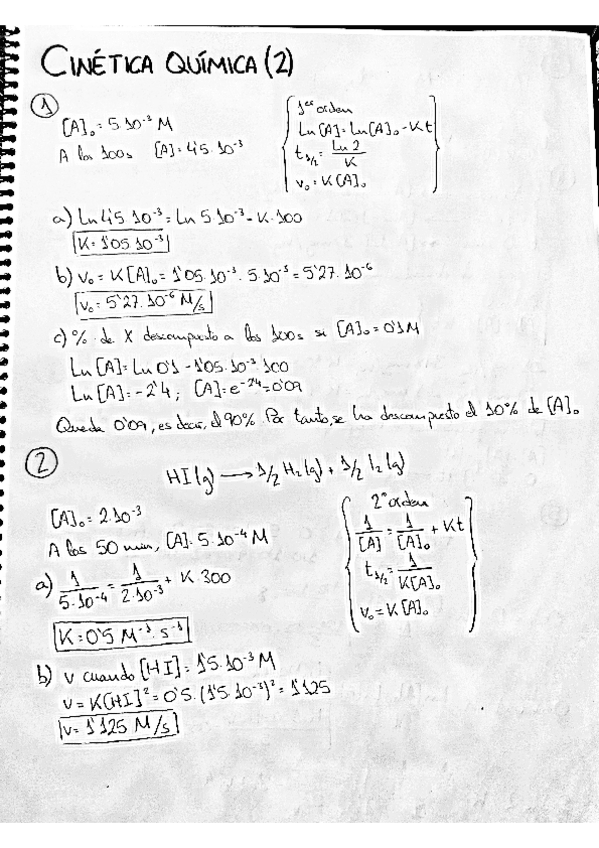 CINÉTICA QUÍMICA (2)
① [A]₀ = 5·10⁻³ M
A los 100s [A] = 4'5·10⁻³
1er orden
Ln[A] = Ln[A]₀ - Kt
t₁/₂ = Ln 2 / K
v₀ = K[A]₀
a) Ln 4'5 10⁻³ = Ln 5 10⁻³ - K·100
K = 1'05 10⁻³
b) v₀ = K[A]₀ = 1'05·10⁻³·5·10⁻³ = 5'27·10⁻⁶
v₀ = 5'27·10⁻⁶ M/s
c) % de X descompuesto a los 100s si [A]₀ = 0'1M
Ln [A] = Ln 0'1 - 1'05·10⁻³·100
Ln [A] = -2'4 ; [A] = e⁻²'⁴ = 0'09
Queda 0'09, es decir, el 90%. Por tanto, se ha descompuesto el 10% de [A]₀
② HI(g) → 1/2 H₂(g) + 1/2 I₂(g)
[A]₀ = 2·10⁻³
A los 50 min, [A]·5·10⁻⁴ M
2º orden
1/[A] = 1/[A]₀ + Kt
t₁/₂ = 1/K[A]₀
v₀ = K[A]₀
a) 1/5·10⁻⁴ = 1/2·10⁻³ + K·300
K = 0'5 M⁻¹·s⁻¹
b) v cuando [HI] = 1'5·10⁻³ M
v = K[HI]² = 0'5·(1'5·10⁻³)² = 1'125
v = 1'125 M/s